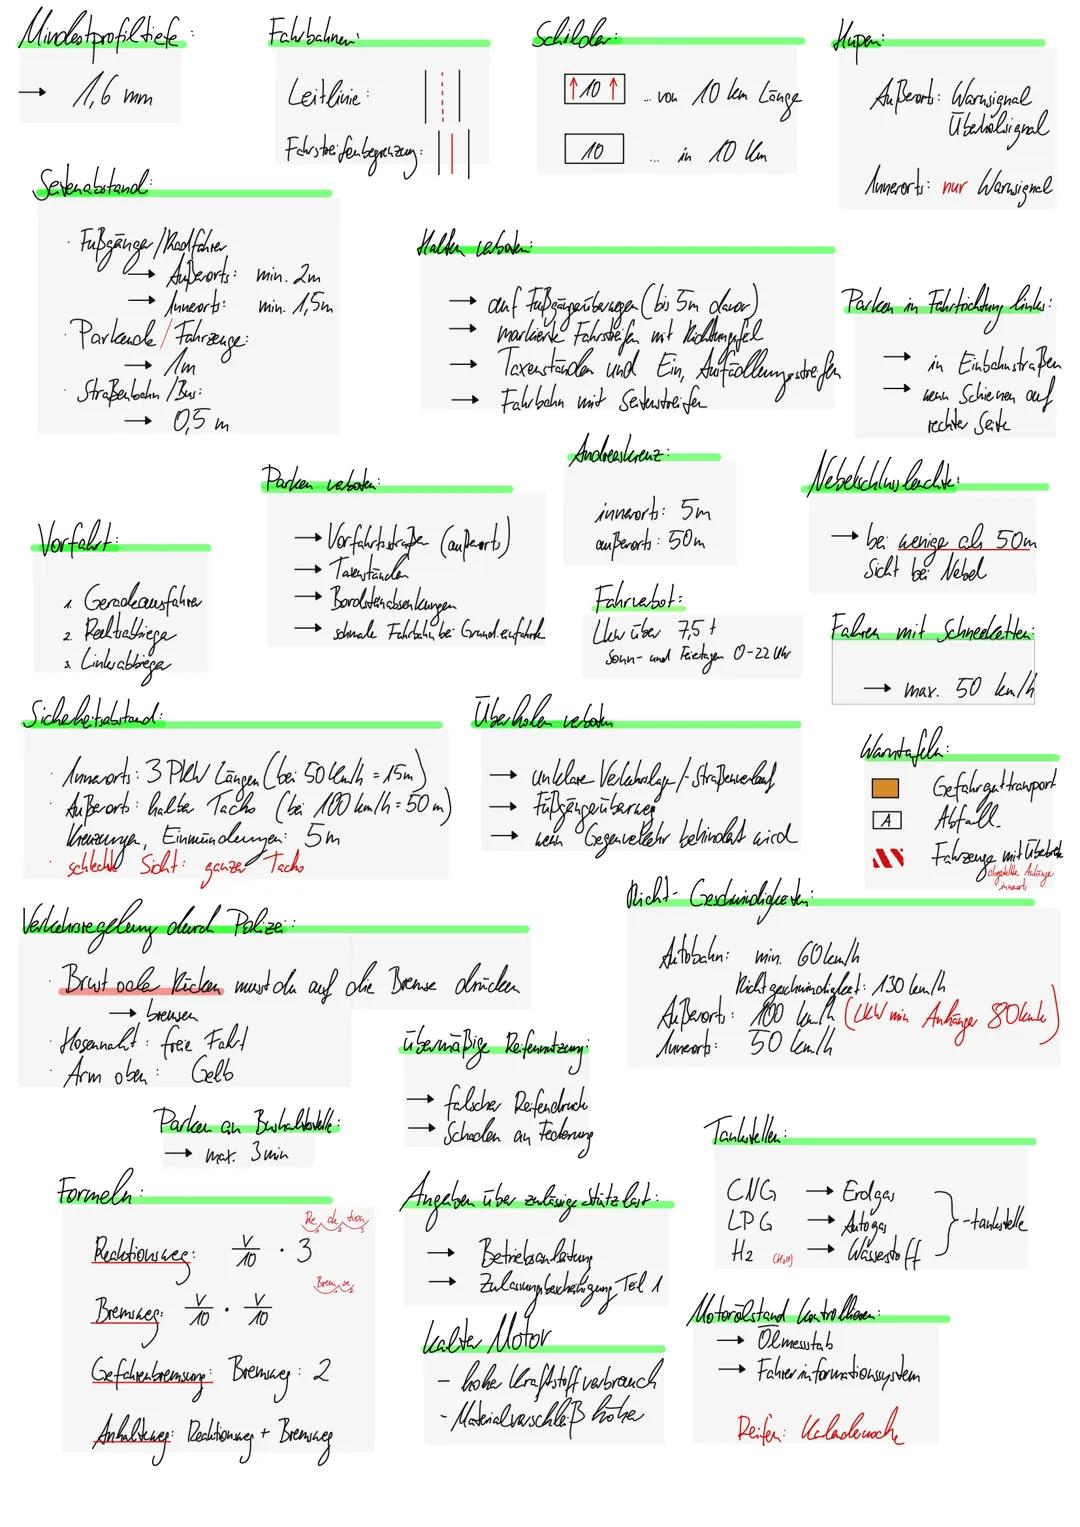 Mindestprofiltiefe:
→ 1,6 mm
Fahrbahnen:
Leitlinie:
Fahrstreifenbegrenzung:
Schilder:
↑ 10 ↑ ... von 10 km Länge
10 ... in 10 km
Hupen:
Außerorts: Warnsignal
Überholsignal
Innerorts: nur Warnsignal
Seitenabstand:
· Fußgänger/Radfahrer
→ Außerorts: min. 2m
→ Innerorts: min. 1,5m
· Parkende / Fahrzeuge:
→ 1m
· Straßenbahn / Bus:
→ 0,5 m
Halten verboten:
→ auf Fußgängerüberwegen (bis 5m davor)
→ markierte Fahrstreifen mit Richtungspfeil
→ Taxenständen und Ein, Ausfädlungsstreifen
→ Fahrbahn mit Seitenstreifen
Parken in Fahrtrichtung links:
→ in Einbahnstraßen
→ wenn Schienen auf
rechter Seite
Vorfahrt:
1. Geradeausfahrer
2. Rechtsabbieger
3. Linksabbieger
Parken verboten:
→ Vorfahrtsstraßen (außerorts)
→ Taxenständen
→ Bordsteinabsenkungen
→ schmale Fahrbahn bei Grund.einfahrt
Andreaskreuz:
innerorts: 5m
außerorts: 50m
Nebelschlussleuchte:
→ bei weniger als 50m
Sicht bei Nebel
Fahrverbot:
Lkw über 7,5 t
Sonn- und Feiertagen 0-22 Uhr
Fahren mit Schneeketten:
→ max. 50 km/h
Sicherheitsabstand:
· Innerorts: 3 PKW Längen (bei 50 km/h = 15m)
· Außerorts: halber Tacho (bei 100 km/h = 50 m)
Kreuzungen, Einmündungen: 5m
· schlechte Sicht: ganzer Tacho
Überholen verboten
→ unklare Verkehrslage /-Straßenverlauf
→ Fußgängerüberweg
→ wenn Gegenverkehr behindert wird
Warntafeln:
Gefahrguttransport
A Abfall
Fahrzeuge mit Überbreite
abgestellte Anhänger
innerorts
Verkehrsregelung durch Polizei:
· Brust oder Rücken musst du auf die Bremse drücken
→ bremsen
· Hosennaht: freie Fahrt
· Arm oben: Gelb
Richt- Geschwindigkeiten:
Autobahn: min. 60km/h
Richtgeschwindigkeit: 130 km/h
Außerorts: 100 km/h (LKW min Anhänger 80km/h)
Innerorts: 50 km/h
übermäßige Reifennutzung:
→ falscher Reifendruck
→ Schaden an Federung
Parken an Bushaltestelle:
→ max. 3min
Tankstellen:
CNG → Erdgas
LPG → Autogas
H2 → Wasserstoff
-tankstelle
Formeln:
Re ak tion
1 2 3
Reaktionsweg: V/10 · 3
Brem se
1 2
Bremsweg: V/10 · V/10
Gefahrenbremsung: Bremsweg : 2
Anhalteweg: Reaktionsweg + Bremsweg
Angaben über zulässige Stützlast:
→ Betriebsanleitung
→ Zulassungsbescheinigung Teil 1
kalter Motor
- hoher Kraftstoffverbrauch
- Materialverschleiß höher
Motorölstand kontrollieren:
→ Ölmessstab
→ Fahrerinformationssystem
Reifen: Kalenderwoche